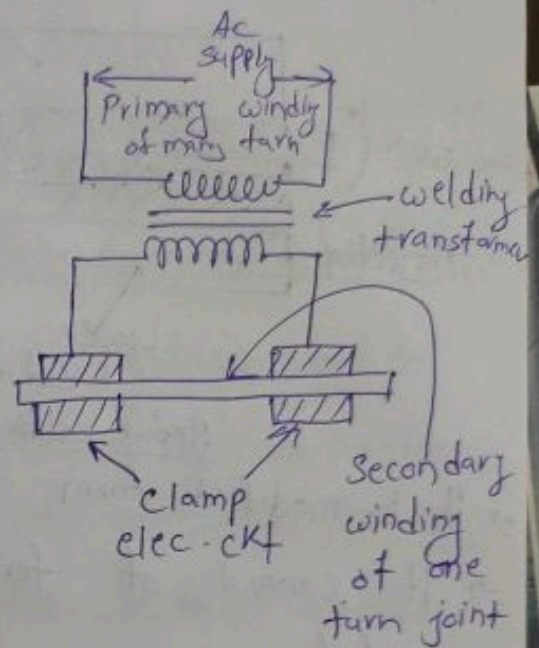 Ac
supply
Primary windig
of many turn
welding
transformer
clamp
elec.ckt
Secondary
winding
of one
turn joint